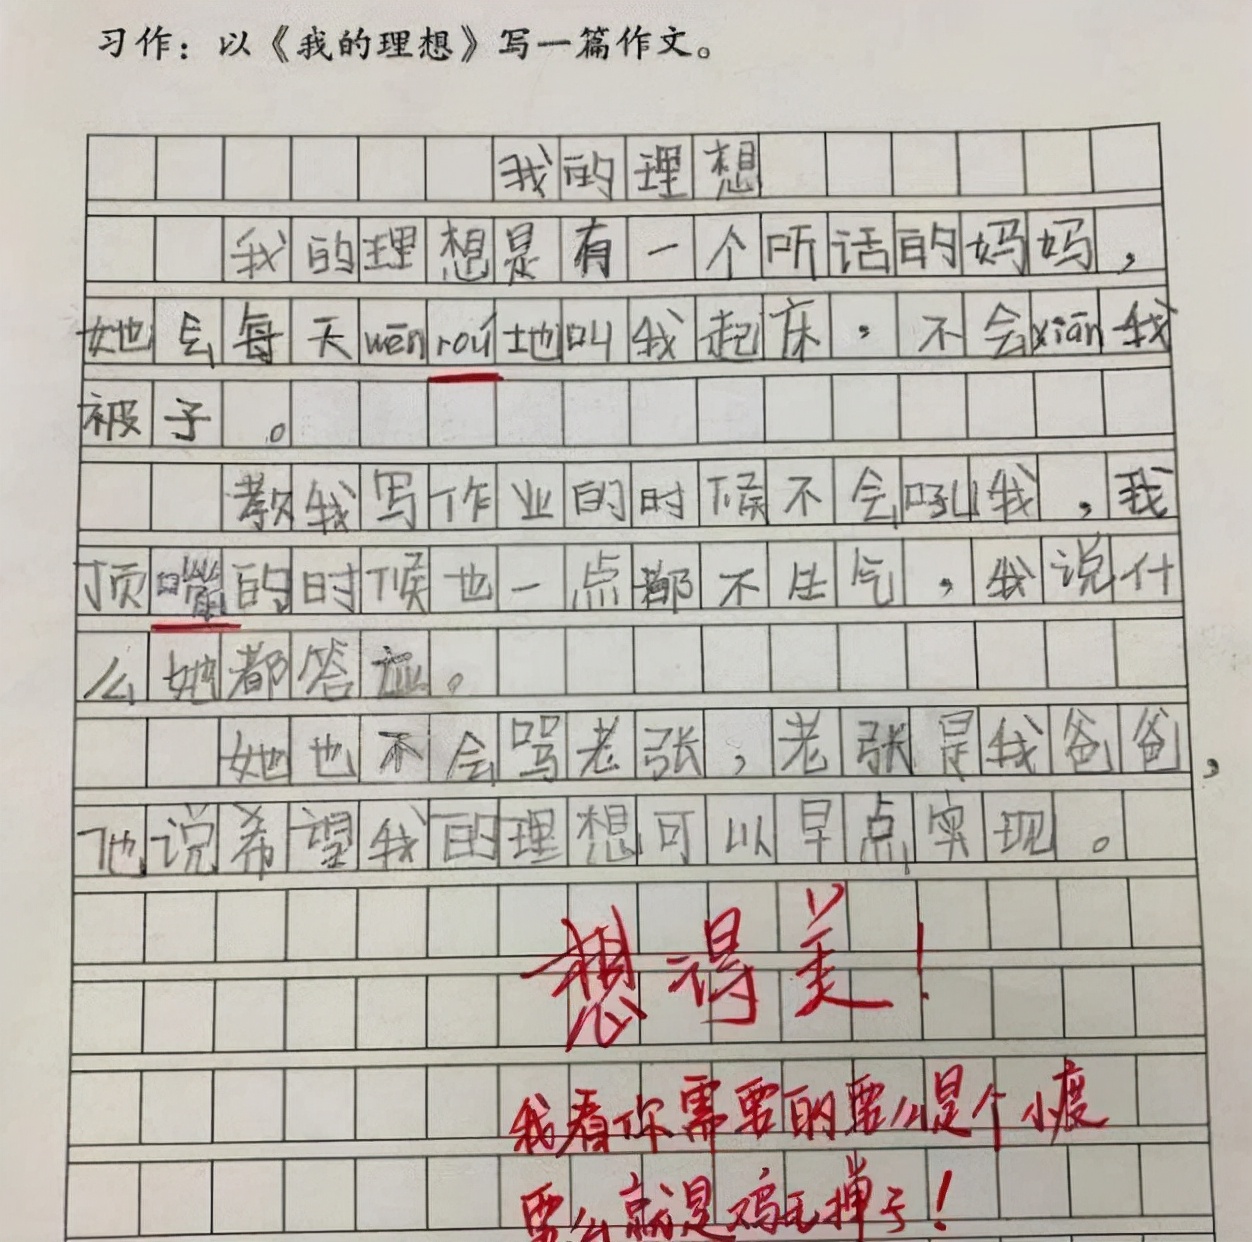 习作：以《我的理想》写一篇作文。
我的理想
我的理想是有一个听话的妈妈，
她会每天wēn roú地叫我起床，不会xiān我
被子。
教我写作业的时候不会吼我，我
顶嘴的时候也一点都不生气，我说什
么她都答应。
她也不会骂老张，老张是我爸爸，
他说希望我的理想可以早点实现。
想得美！
我看你需要的要么是个小度
要么就是鸡毛掸子！